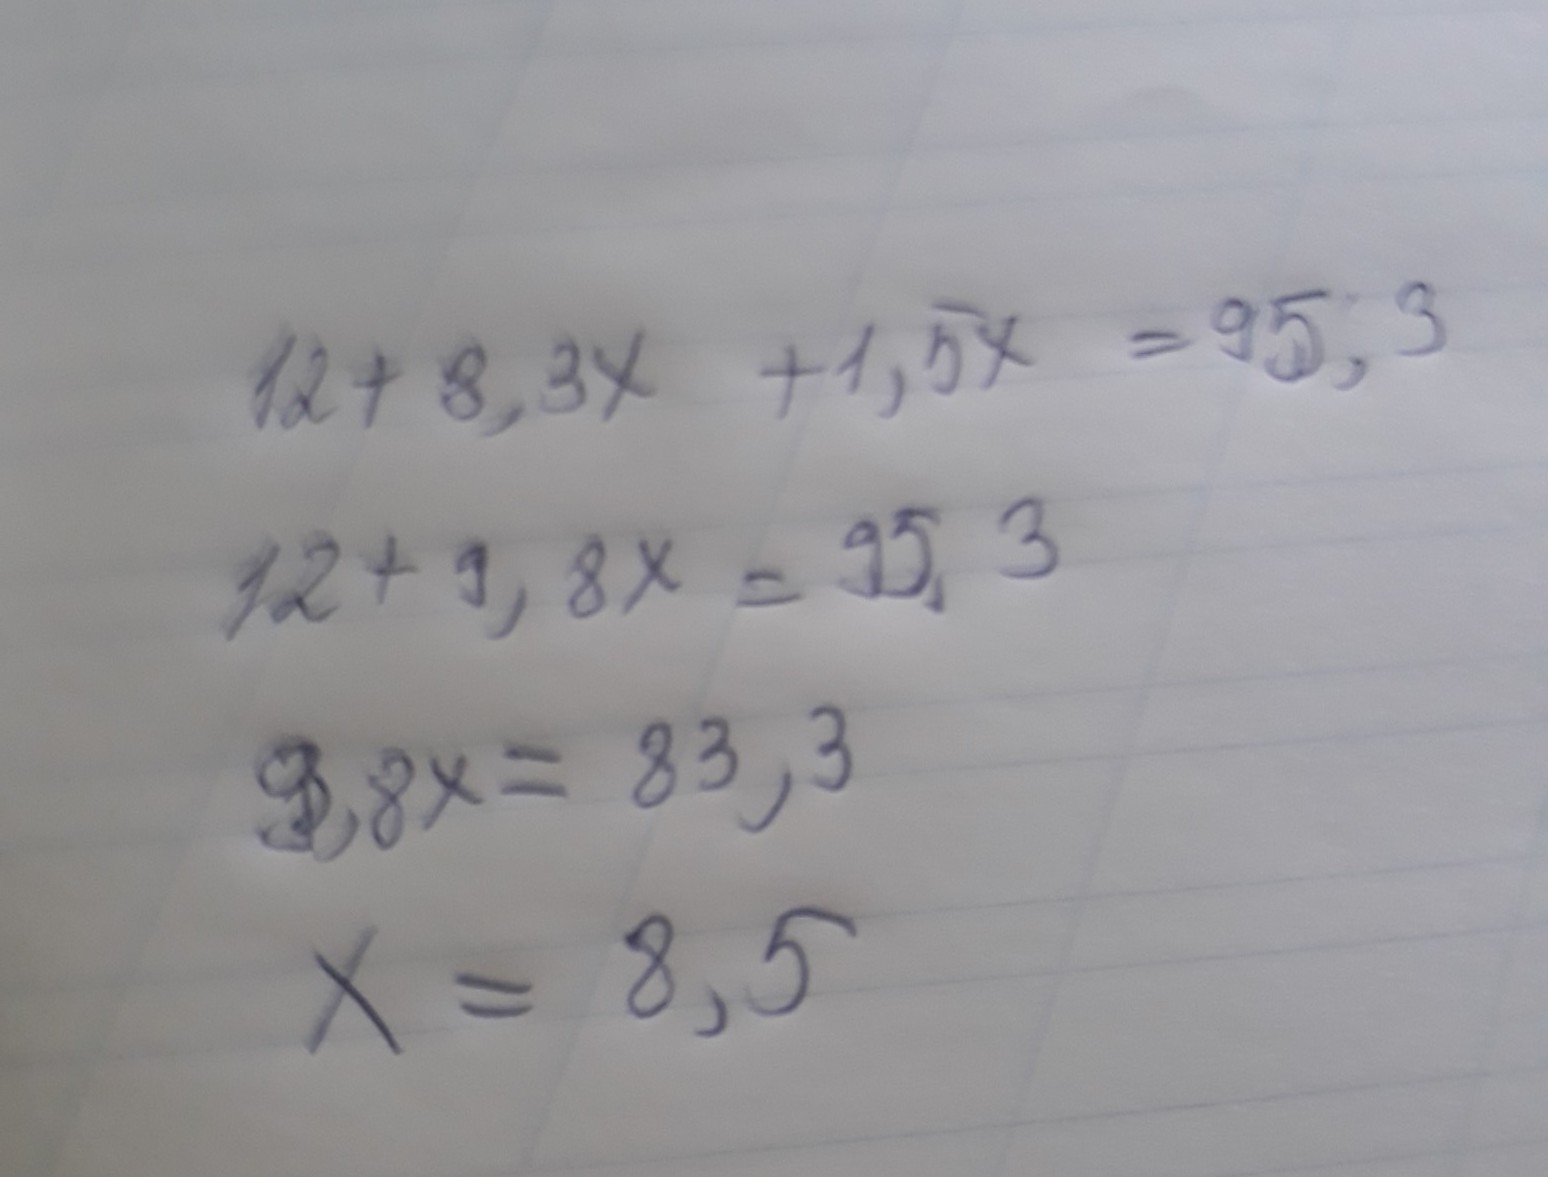 12 + 8,3x + 1,5x = 95,3
12 + 9,8x = 95,3
9,8x = 83,3
x = 8,5